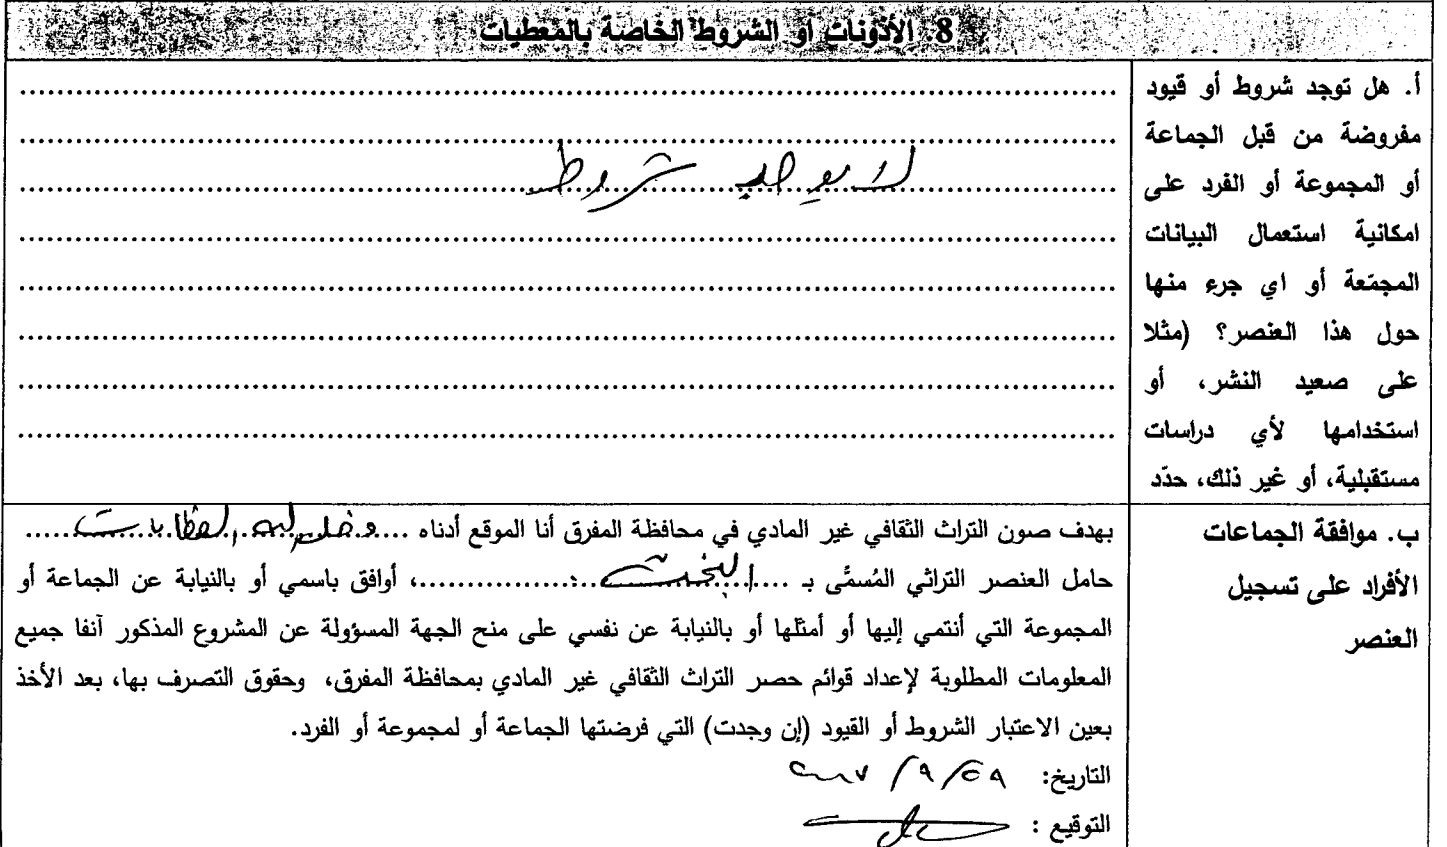 8. الأذونات أو الشروط الخاصة بالمعطيات
أ. هل توجد شروط أو قيود
مفروضة من قبل الجماعة
أو المجموعة أو الفرد على
امكانية استعمال البيانات
المجمّعة أو اي جرء منها
حول هذا العنصر؟ (مثلا
على صعيد النشر، أو
استخدامها لأي دراسات
مستقبلية، أو غير ذلك، حدّد
لا يوجد شروط
ب. موافقة الجماعات
الأفراد على تسجيل
العنصر
بهدف صون التراث الثقافي غير المادي في محافظة المفرق أنا الموقع أدناه
حامل العنصر التراثي المُسمَّى بـ ................، أوافق باسمي أو بالنيابة عن الجماعة أو
المجموعة التي أنتمي إليها أو أمثلها أو بالنيابة عن نفسي على منح الجهة المسؤولة عن المشروع المذكور آنفا جميع
المعلومات المطلوبة لإعداد قوائم حصر التراث الثقافي غير المادي بمحافظة المفرق، وحقوق التصرف بها، بعد الأخذ
بعين الاعتبار الشروط أو القيود (إن وجدت) التي فرضتها الجماعة أو لمجموعة أو الفرد.
التاريخ:
التوقيع :